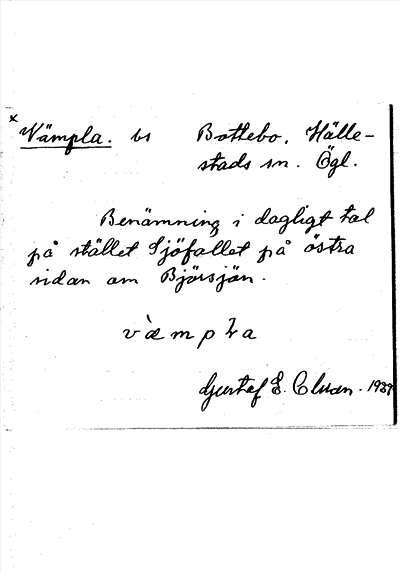 x
Vämpla. bs Bottebo, Hälle-
stads sn. Ögl.
Benämning i dagligt tal
på stället Sjöfallet på östra
sidan om Björsjön.
Gustaf E. 1939